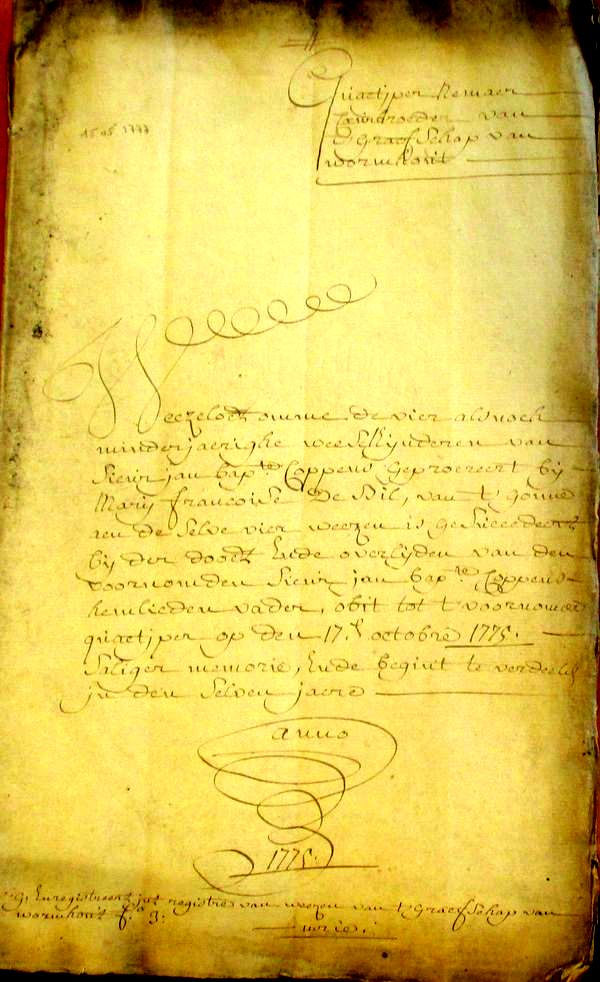 Quaetjper Remaer
Lantroeden van
t Graef Schap van
wormhout
15 05 1777
Weezelodt omme de vier alsnoch
minderjaerighe weeSekijnderen van
Sieur jan bap:te Coppens Geprocreert bij
Marij francoise De Bil, van t gonne
aen de Selve vier weezen is GeSucedeert
bij der doodt Ende overlijden van den
voornomden Sieur jan bap:te Coppens
hemlieden vader, obit tot t voornomde
quaetjper op den 17.e octobre 1775.
Saliger memorie, Ende begint te verdeelt
jn den Selven jaere
anno
1775.
Enregistreert jnt registre van weezen van t Graef Schap van
wormhout f.o 9: